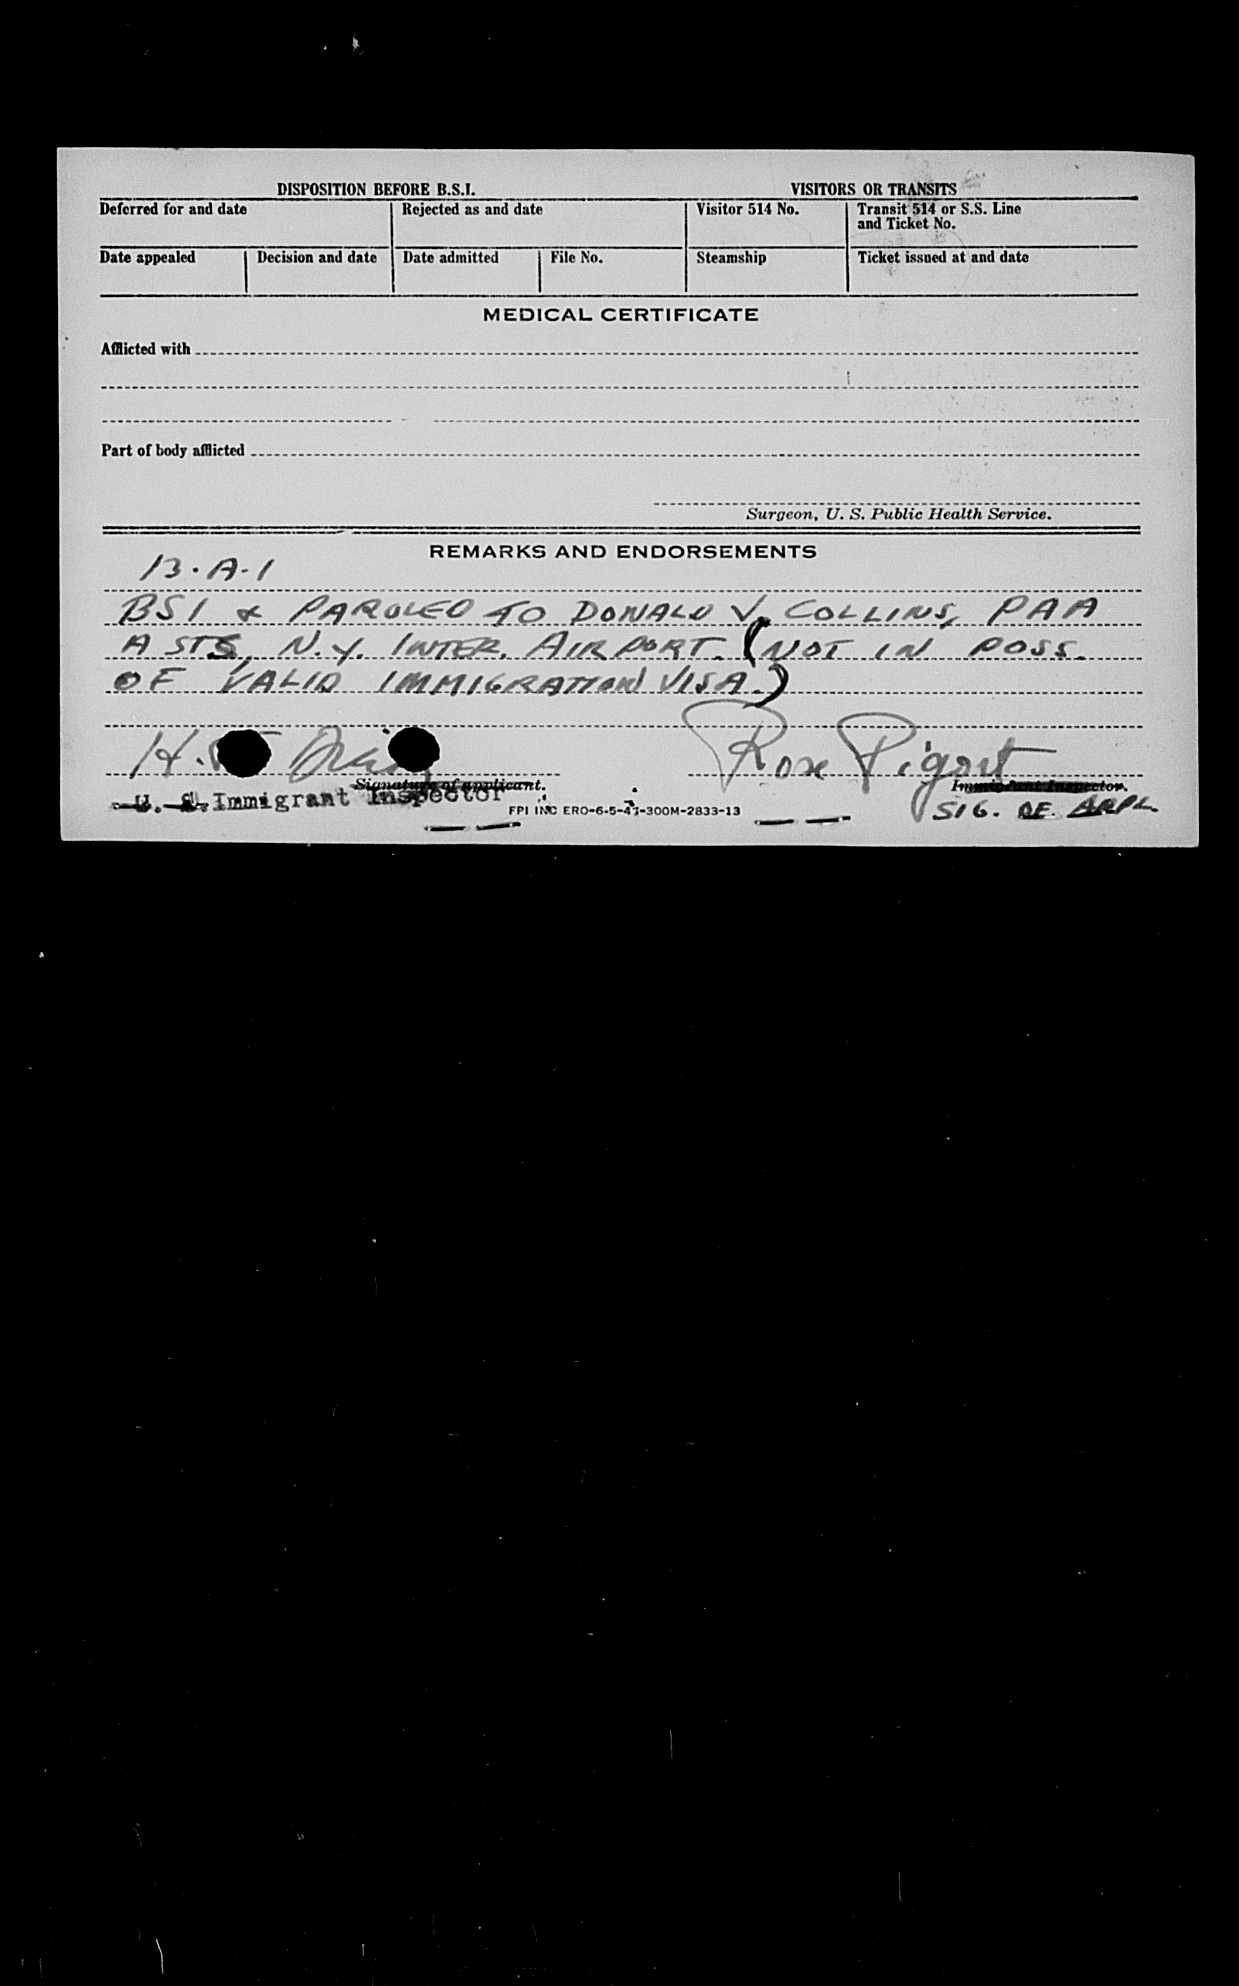 DISPOSITION BEFORE B.S.I. VISITORS OR TRANSITS
Deferred for and date Rejected as and date Visitor 514 No. Transit 514 or S.S. Line
and Ticket No.
Date appealed Decision and date Date admitted File No. Steamship Ticket issued at and date
MEDICAL CERTIFICATE
Afflicted with
Part of body afflicted
Surgeon, U. S. Public Health Service.
REMARKS AND ENDORSEMENTS
13-A-1
BSI & PAROLED TO DONALD V. COLLINS, PAA
A STS, N.Y. INTER. AIRPORT. (NOT IN POSS.
OF VALID IMMIGRATION VISA.)
H. Rose Pigort
Signature of applicant. Immigrant Inspector.
U. S. Immigrant Inspector SIG. OF APPL.
FPI INC ERO-6-5-47-300M-2833-13